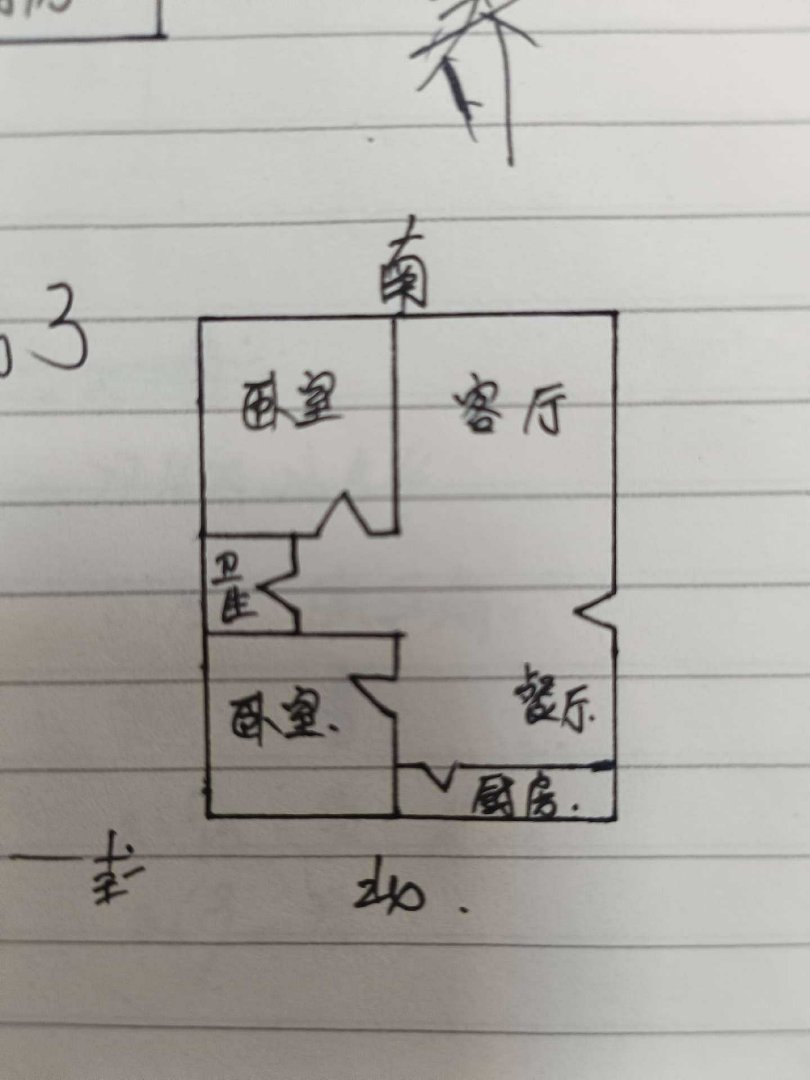 南
3
卧室 客厅
卫生
卧室. 餐厅.
厨房.
北.